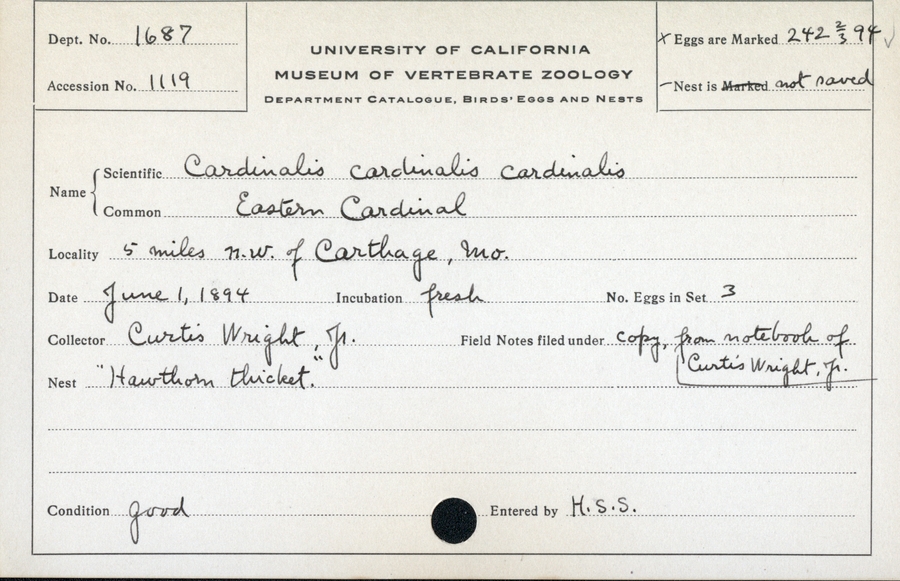 Dept. No. 1687
Accession No. 1119
UNIVERSITY OF CALIFORNIA
MUSEUM OF VERTEBRATE ZOOLOGY
DEPARTMENT CATALOGUE, BIRDS' EGGS AND NESTS
x Eggs are Marked 242 2/3 94 ✓
– Nest is Marked not saved
Name
Scientific Cardinalis cardinalis cardinalis
Common Eastern Cardinal
Locality 5 miles n.w. of Carthage, Mo.
Date June 1, 1894 Incubation fresh No. Eggs in Set 3
Collector Curtis Wright, Jr. Field Notes filed under copy, from notebook of
Curtis Wright, Jr.
Nest "Hawthorn thicket."
Condition good Entered by H.S.S.